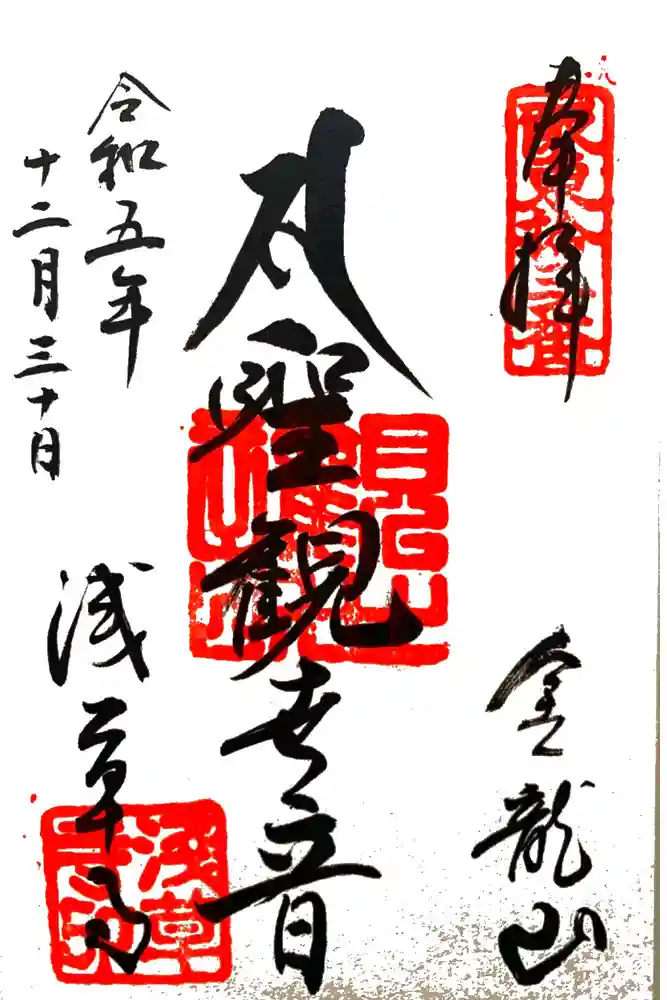 奉拝
坂東拾三番
金龍山
聖観世音
浅草寺
令和五年
十二月三十日